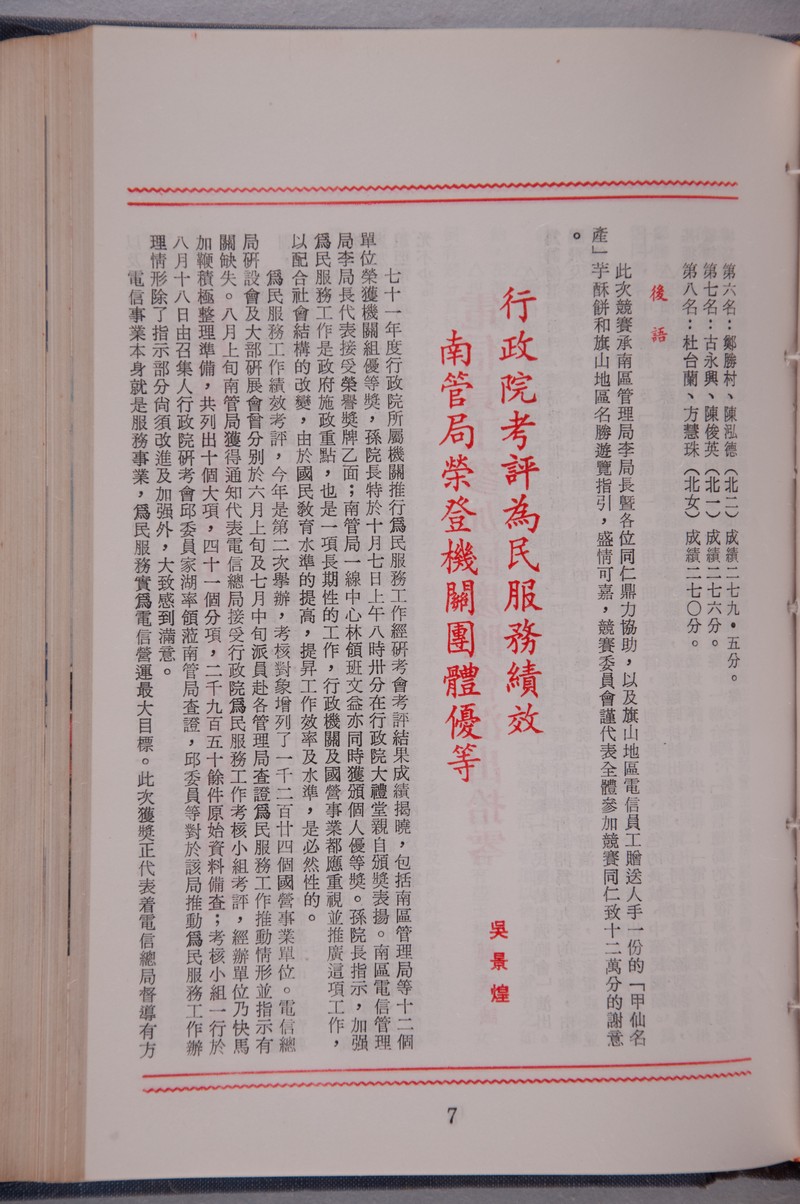 第六名：鄒勝村、陳泓德（北二）成績二七九．五分。
第七名：古永興、陳俊英（北一）成績二七六分。
第八名：杜台蘭、方慧珠（北女）成績二七〇分。
後語
此次競賽承南區管理局李局長暨各位同仁鼎力協助，以及旗山地區電信員工贈送人手一份的「甲仙名
產」芋酥餅和旗山地區名勝遊覽指引，盛情可嘉，競賽委員會謹代表全體參加競賽同仁致十二萬分的謝意
。
行政院考評為民服務績效
南管局榮登機關團體優等
吳景煌
七十一年度行政院所屬機關推行爲民服務工作經硏考會考評結果成績揭曉，包括南區管理局等十二個
單位榮獲機關組優等獎，孫院長特於十月七日上午八時卅分在行政院大禮堂親自頒獎表揚。南區電信管理
局李局長代表接受榮譽獎牌乙面；南管局一線中心林領班文益亦同時獲頒個人優等獎。孫院長指示，加强
爲民服務工作是政府施政重點，也是一項長期性的工作，行政機關及國營事業都應重視並推廣這項工作，
以配合社會結構的改變，由於國民敎育水準的提高，提昇工作效率及水準，是必然性的。
爲民服務工作績效考評，今年是第二次舉辦，考核對象增列了一千二百廿四個國營事業單位。電信總
局硏設會及大部硏展會曾分別於六月上旬及七月中旬派員赴各管理局查證爲民服務工作推動情形並指示有
關缺失。八月上旬南管局獲得通知代表電信總局接受行政院爲民服務工作考核小組考評，經辦單位乃快馬
加鞭積極整理準備，共列出十個大項，四十一個分項，二千九百五十餘件原始資料備查；考核小組一行於
八月十八日由召集人行政院硏考會邱委員家湖率領蒞南管局查證，邱委員等對於該局推動爲民服務工作辦
理情形除了指示部分尙須改進及加强外，大致感到滿意。
電信事業本身就是服務事業，爲民服務實爲電信營運最大目標。此次獲獎正代表着電信總局督導有方
7